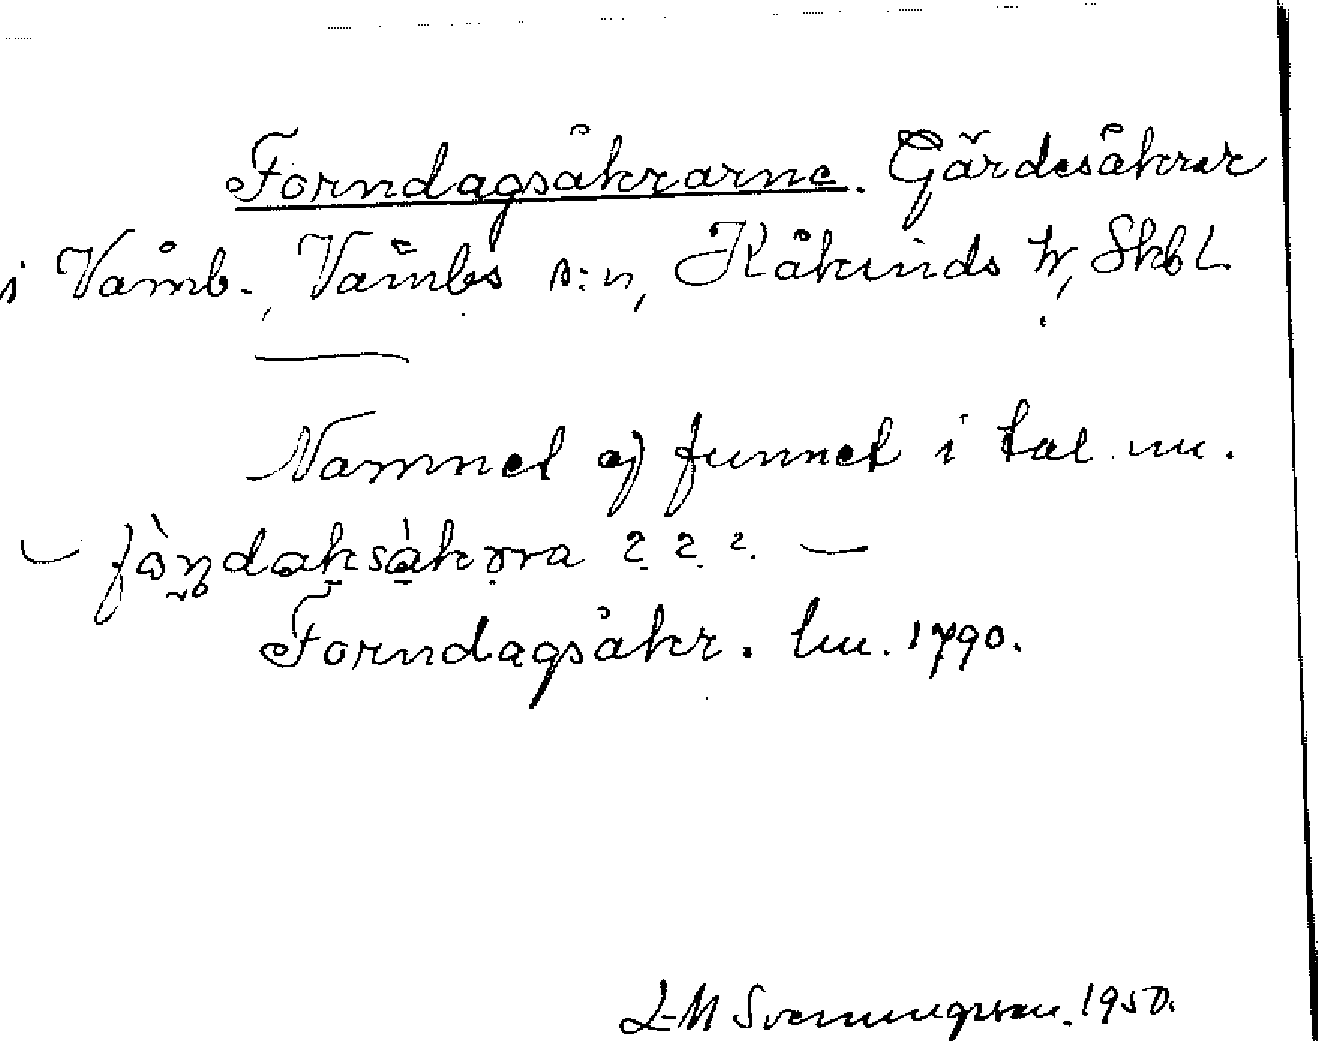 Forndagsåkrarne. Gärdesåkrar
i Våmb., Våmbs s:n, Kåkinds h, Skbl.
Namnet ej funnet i tal. nu.
Forndagsåkr. lm. 1790.
L-M Svenungsson. 1950.